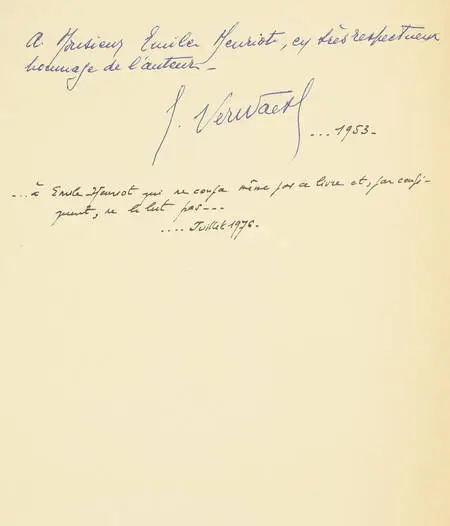 A Monsieur Emile Henriot, en très respectueux
hommage de l'auteur _
J. Verwaest
... 1953 _
... à Emile Henriot qui ne coupa même pas ce livre et, par consé-
quent, ne le lut pas ...
.... Juillet 1976 _